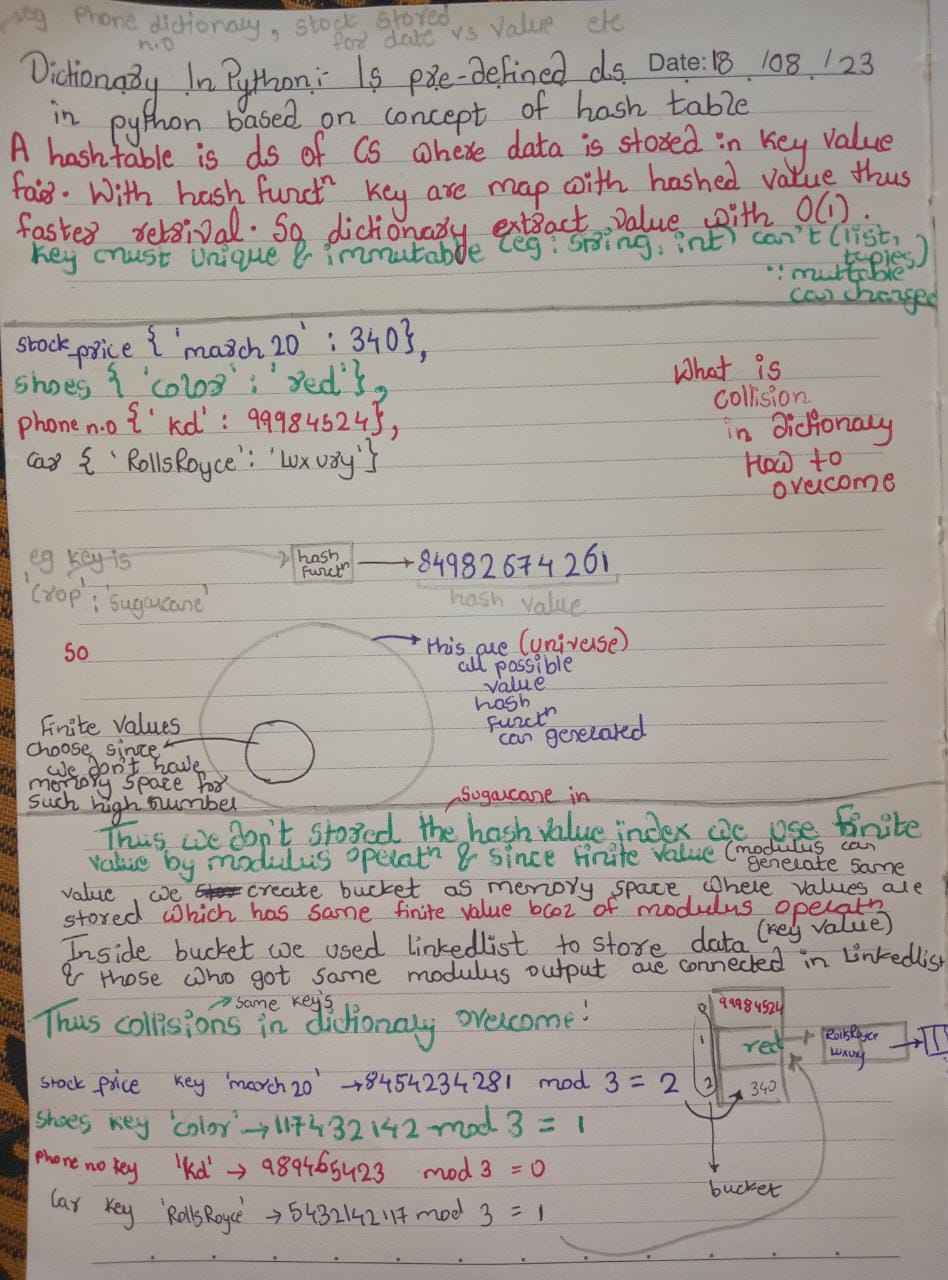 eg Phone dictionary, stock stored
n.o for date vs value etc
Date: 18 /08 /23
Dictionary In Python:- Is pre-defined ds
in python based on concept of hash table
A hashtable is ds of CS where data is stored in key value
fair. With hash functn key are map with hashed value thus
faster retrival. So dictionary extract value with O(1).
Key must unique & immutable (eg: string, int) can't (list,
tuples)
∵ muttable
can changed
stock price { 'march 20' : 340},
shoes { 'color' : 'red'},
phone n.o {'kd' : 99984524},
car { 'RollsRoyce' : 'Luxury'}
What is
collision
in dictionary
How to
overcome
eg key is
'crop' : 'sugarcane'
hash
functn
84982674261
hash value
So
this are (universe)
all possible
value
hash
functn
can generated
Finite values
choose since
we don't have
memory space for
such high number
Sugarcane in
Thus we don't stored the hash value index we use finite
value by modulus operatn & since finite value (modulus can
generate same
value we create bucket as memory space where values are
stored which has same finite value bcoz of modulus operatn
Inside bucket we used linkedlist to store data (key value)
& those who got same modulus output are connected in Linkedlist
same key's
Thus collisions in dictionary overcome:
stock price key 'march 20' → 8454234281 mod 3 = 2
Shoes key 'color' → 117432142 mod 3 = 1
Phone no key 'kd' → 989465423 mod 3 = 0
Car key 'RollsRoyce' → 5432142117 mod 3 = 1
0
1
2
99984524
red
340
RollsRoyce
luxury
bucket